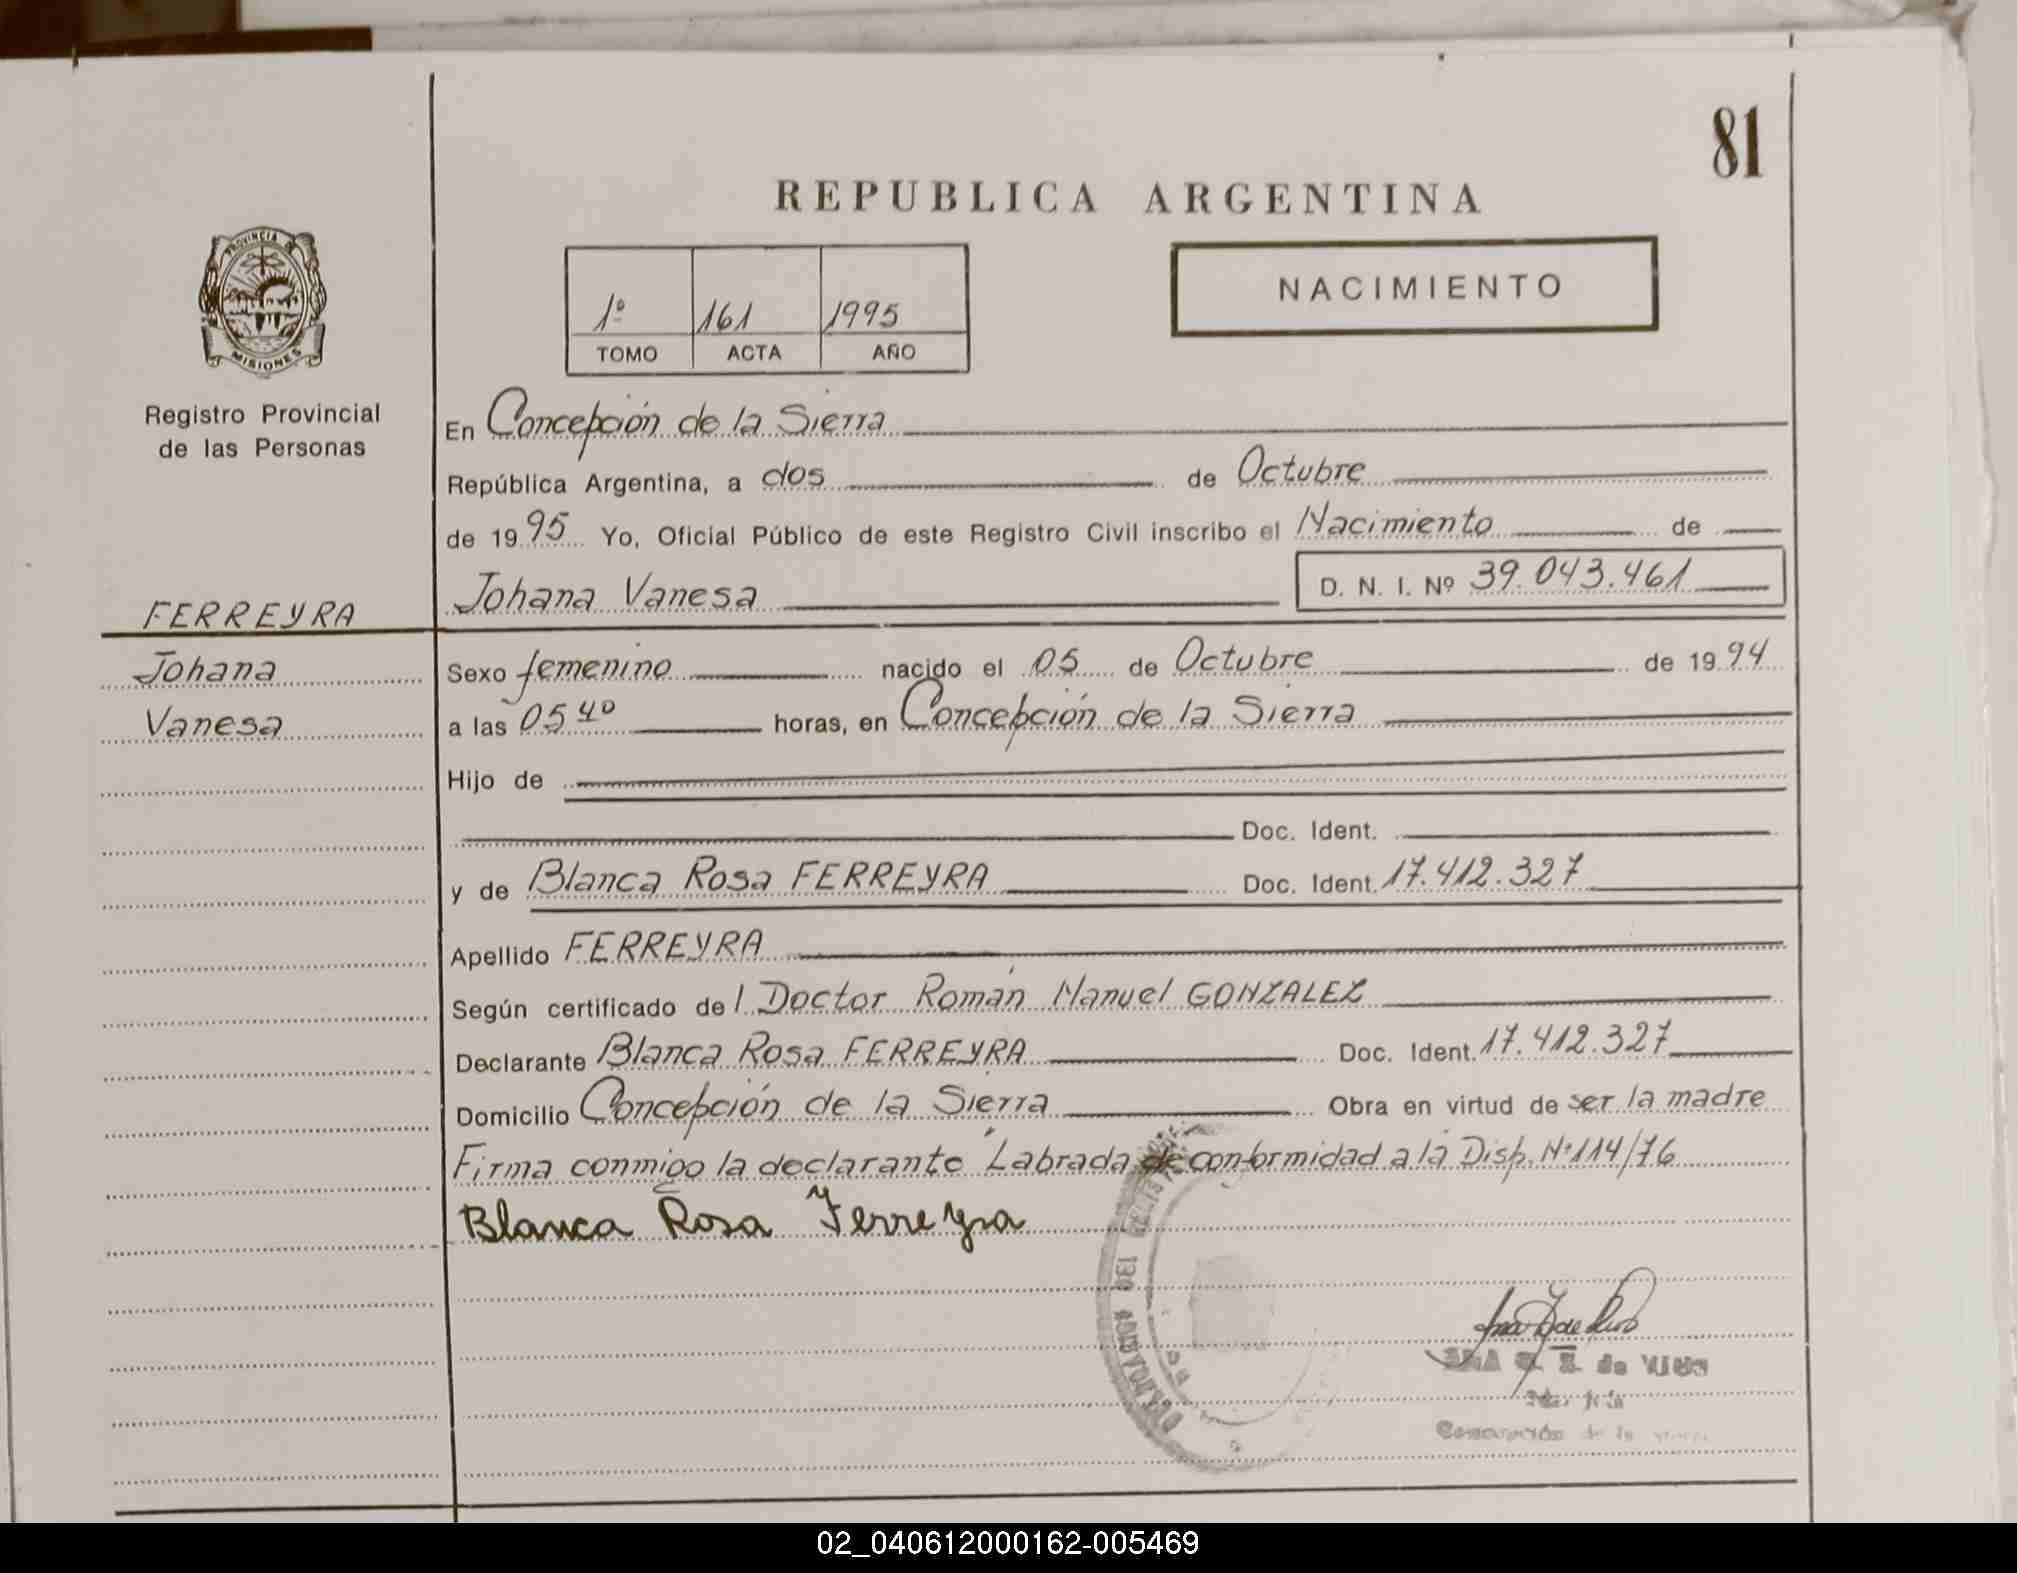 81
REPUBLICA ARGENTINA
PROVINCIA DE
MISIONES
Registro Provincial
de las Personas
1º 161 1995
TOMO ACTA AÑO
NACIMIENTO
En Concepción de la Sierra
República Argentina, a dos de Octubre
de 1995 Yo, Oficial Público de este Registro Civil inscribo el Nacimiento de
Johana Vanesa D. N. I. Nº 39.043.461
FERREYRA
Johana
Vanesa
Sexo femenino nacido el 05 de Octubre de 1994
a las 05 40 horas, en Concepción de la Sierra
Hijo de
Doc. Ident.
y de Blanca Rosa FERREYRA Doc. Ident. 17.412.327
Apellido FERREYRA
Según certificado de l Doctor Román Manuel GONZALEZ
Declarante Blanca Rosa FERREYRA Doc. Ident. 17.412.327
Domicilio Concepción de la Sierra Obra en virtud de ser la madre
Firma conmigo la declarante Labrada de conformidad a la Disp. Nº 114/76
Blanca Rosa Ferreyra
de
02_040612000162-005469